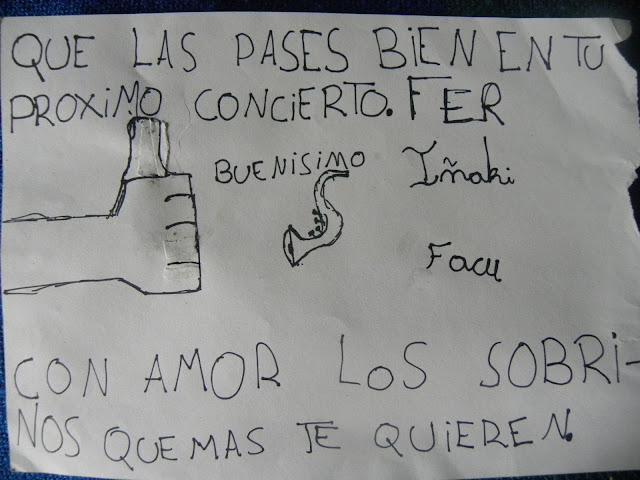 QUE LAS PASES BIEN EN TU
PROXIMO CONCIERTO. FER
BUENISIMO
Iñaki
Facu
CON AMOR LOS SOBRI-
NOS QUE MAS TE QUIEREN.